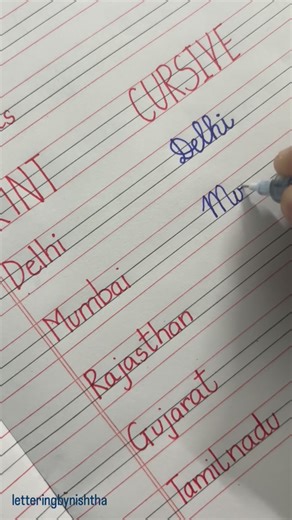 CURSIVE
Delhi
Delhi
Mumbai
Rajasthan
Gujarat
Tamilnadu
letteringbynishtha